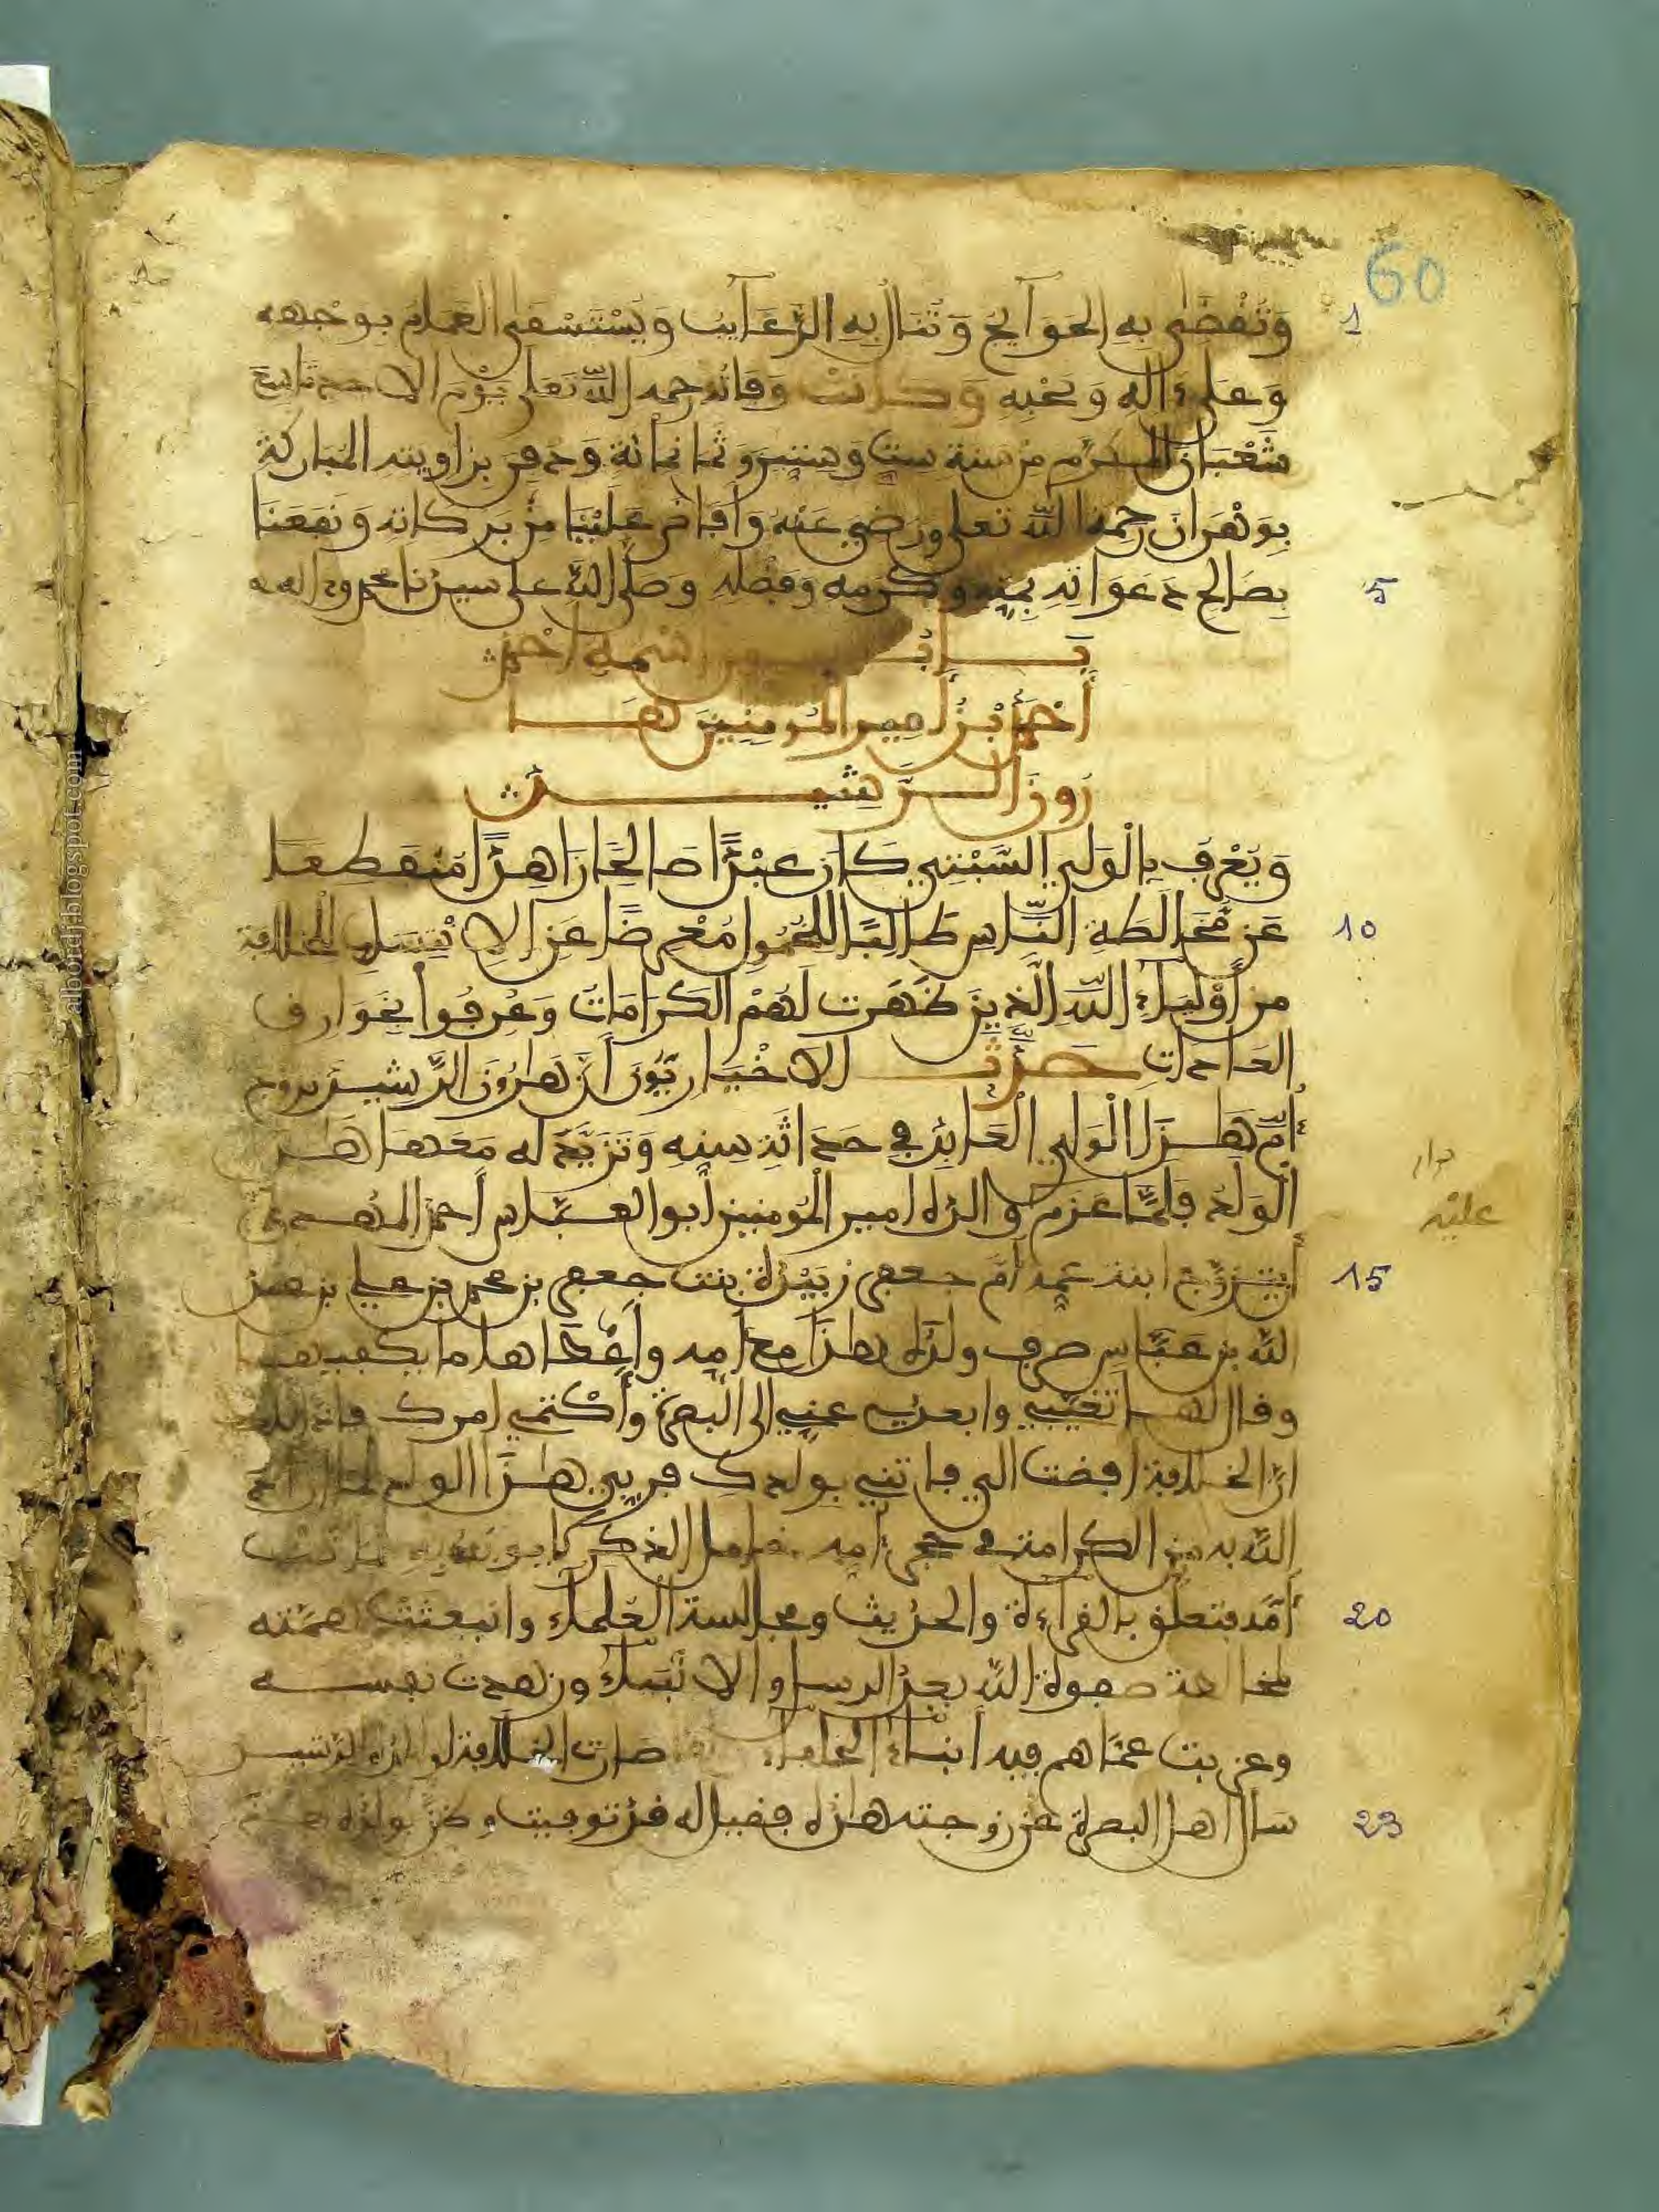 60
1 وَتُقْضَى بِهِ الحَوَآيِجُ وَتُنَالُ بِهِ الرَّغَآيِبُ وَيُسْتَسْقَى الغَمَامُ بوجهه
وَعَلَى ءَالِه وَصَحْبِهِ وَكَانَتْ وَفَاتُه رحمه اللَّه تَعَلى يَوْم الاحد تاسع
شَعْبَان المكرم من سنة ست وستين وثمانمائة وَدفن بزاويته المباركة
بِوَهْرَان رحمه اللَّه تعلى ورضي عَنْهُ وَأَفَاضَ عَلَيْنَا مِنْ بَرَكَاتِه وَنَفَعَنَا
5 بِصَالِحِ دَعَوَاتِهِ بِمَنِّهِ وكرمه وفضله وصلى اللَّه على سيدنا محمد وءاله
بَابُ من اسمه أحمد
أَحْمَدُ بْنُ أَمِيرِ المُومِنِينَ هَا
رُونَ الرَّشِيد
وَيُعْرَفُ بِالْوَلِي السَّبْتِي كَانَ عَبْدًا صَالِحًا زَاهِدًا مُنْقَطِعًا
10 عَن مُّخَالَطَةِ النَّاسِ طَالِبًا لِلْخُمُولِ مُعْرِضًا عَنِ الانتساب للخلافة
مِن أَوْلِيَآءِ اللَّهِ الَّذِينَ ظَهَرَت لَهُمْ الكَرَامَاتُ وَعُرِفُوا بِخَوَارِق
العَادَاتِ حَدَّثَ الاخْبَارِيُّونَ أَنَّ هَارُونَ الرَّشِيدَ تزوج
أُمَّ هَذَا الْوَلِي الْعَابِدِ فِي حَدَاثَةِ سِنِّهِ وَتَزَيَّدَ له مَعَهَا هَذَا
الْوَلَدُ فَلَمَّا عَزَمَ والده امير المُومنين أبو العباس أحمد المهدي
دار
عليه
15 أَن يتزوج ابنة عمه أم جعفر زُبَيْدَة بنت جعفر بن محمد بن علي بن عبد
اللَّه بن عَبَّاس صرف ولده هذا مع أُمِّه وأَعْطَاها ما يكفيها
وقال لها تغيبي وابعدي عني إلى البصرة وأكتمي امرك فاذا
ان الخلافة افضت الي فاتني بولدك فربي هذا الولد لما اراد
اللَّه به من الكرامة في حجر أمه
20 أُمُّه فتعلق بالقراءة والحديث ومجالسة العُلماء وانبعثت همته
لمخالطة صفوة اللَّه بعد الرسل والانْبِيَاء وزهدت نفسه
وعزبت عمّا هم فيه أبناء الخلفاء صارت الخلافة لوالده الرشيد
23 سَال اهل البصرة عن زوجته هذه فقيل له قد توفيت وظن بولده
alhord.blogspot.com